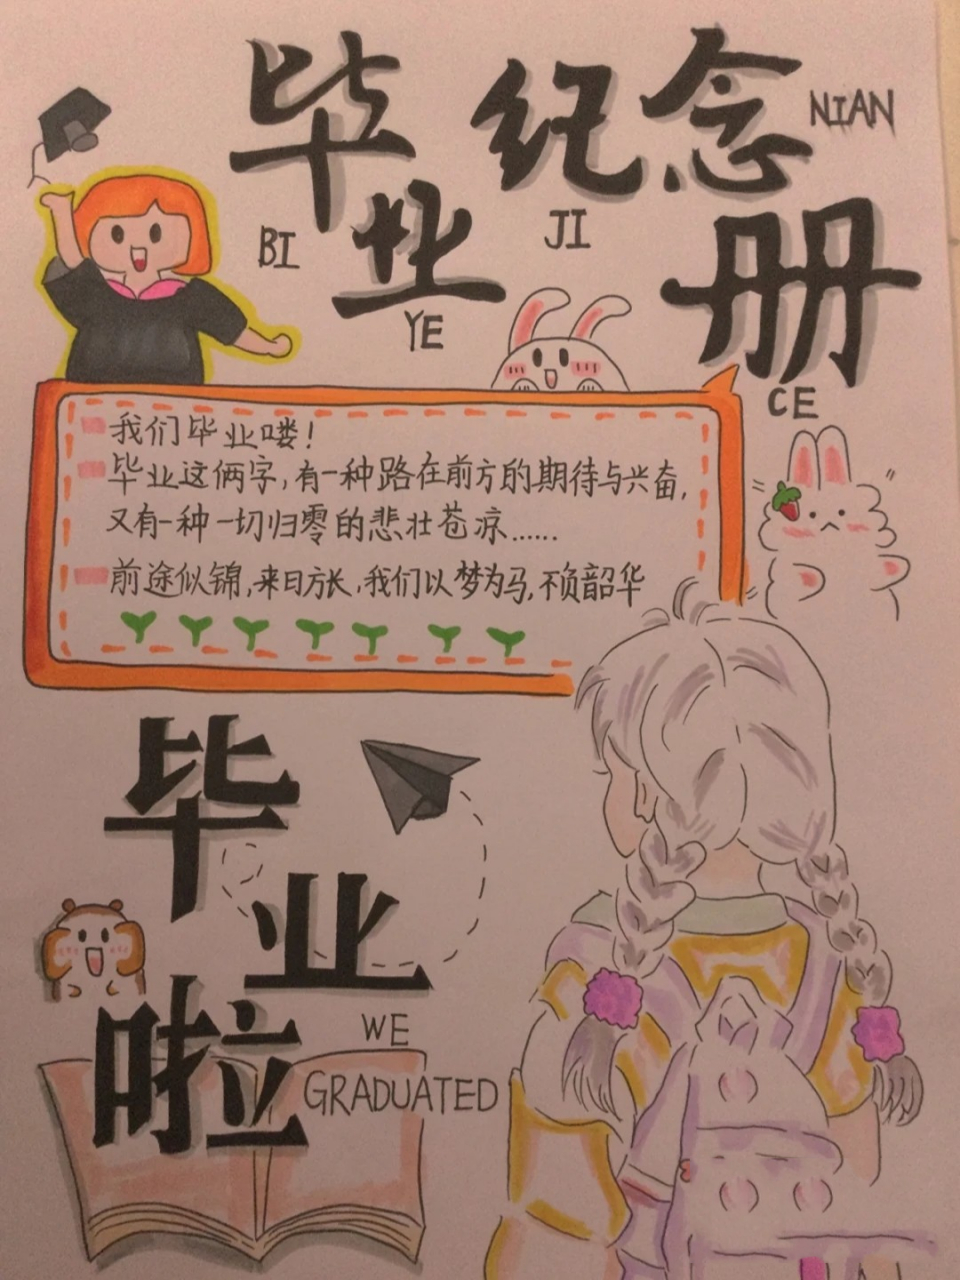 毕业纪念册
NIAN
BI
JI
YE
CE
我们毕业喽!
毕业这俩字,有一种路在前方的期待与兴奋,
又有一种一切归零的悲壮苍凉......
前途似锦,来日方长,我们以梦为马,不负韶华
毕业啦
WE
GRADUATED